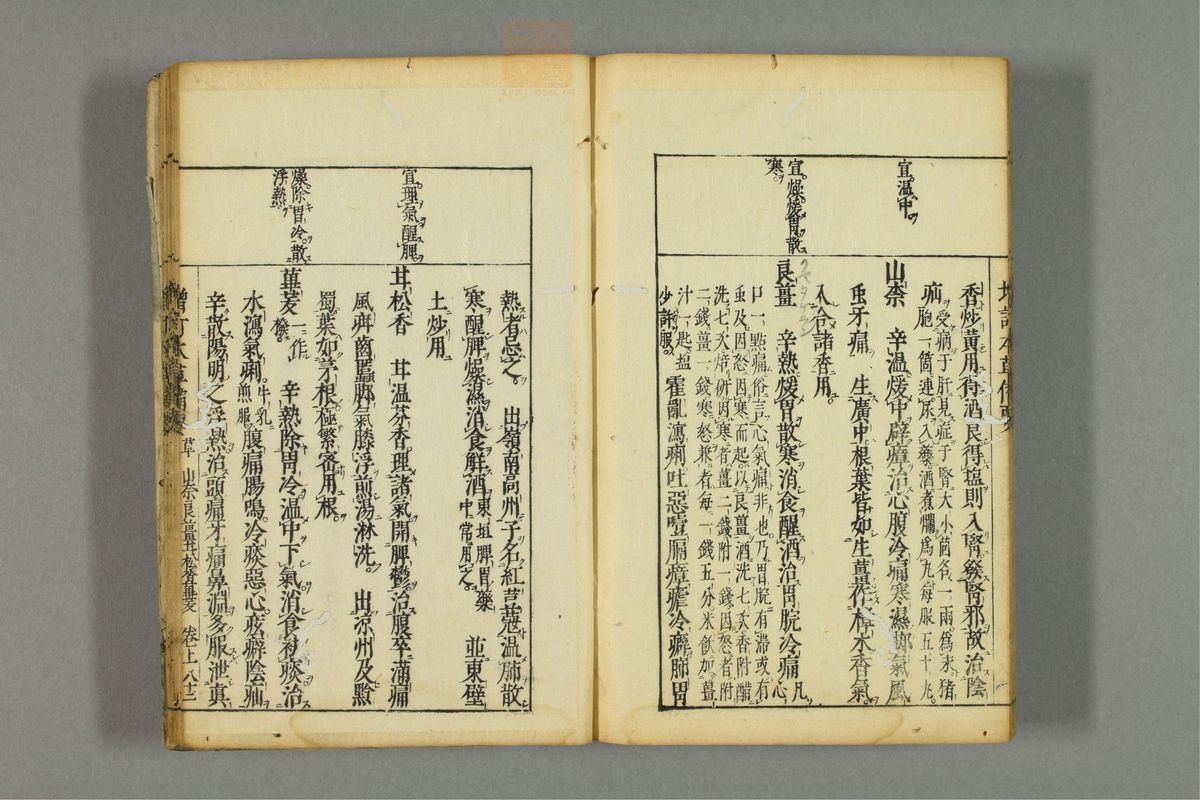 宜溫中
宜燥煖胃散
寒
香炒黃用得酒良得塩則入腎發腎邪故治陰
疝受病于肝見症于腎大小茴各一兩爲末猪
胞一箇連尿入藥酒煮爛爲丸每服五十丸
山柰　辛溫煖中辟瘴治心腹冷痛寒濕霍亂風
虫牙痛　生廣中根葉皆如生薑作樟木香氣
入合諸香用
良薑　辛熱煖胃散寒消食醒酒治胃脘冷痛凡心
口一點痛俗言心氣痛非也乃胃脘有滯或有
虫及因怒因寒而起以良薑酒洗七次香附醋
洗七次焙研因寒者薑二錢附一錢因怒者附
二錢薑一錢寒怒兼者每一錢五分米飲加薑
汁一匙塩
少許服　霍亂瀉痢吐惡噎膈瘴瘧冷癖肺胃
宜理氣醒脾
燥除胃冷散
浮熱
熱者忌之　出嶺南高州子名紅荳蔻溫肺散
寒醒脾燥濕消食解酒東垣脾胃藥中常用之　並東壁
土炒用
甘松香　甘溫芬香理諸氣開脾鬱治腹卒滿痛
風疳齒䘌脚氣膝浮煎湯淋洗　出涼州及黔
蜀葉如茅根極繁密用根
蓽茇一作撥　辛熱除胃冷溫中下氣消食祛痰治
水瀉氣痢牛乳煎服腹痛腸鳴冷痰惡心痃癖陰疝
辛散陽明之浮熱治頭痛牙痛鼻淵多服泄真
草　山柰良薑甘松香蓽茇　卷上八十二